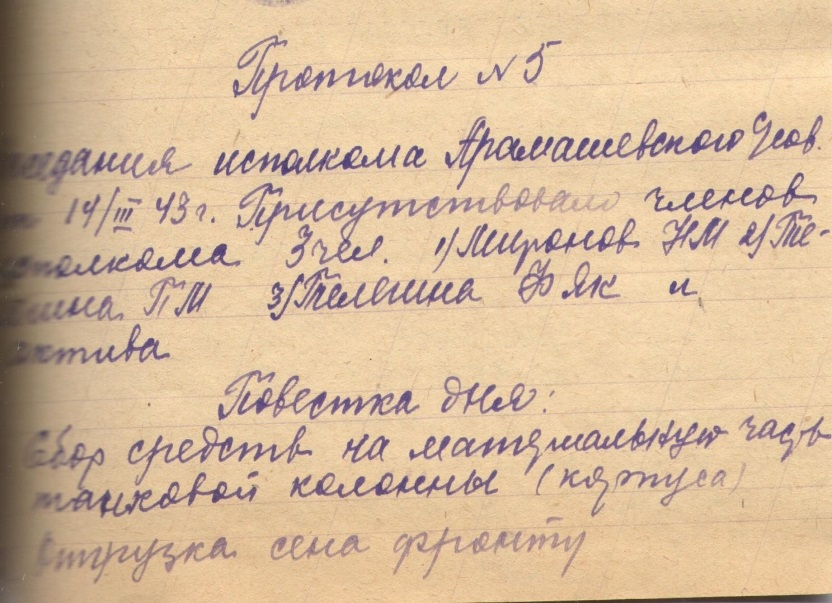 Протокол N 5
заседания исполкома Арамашевского
от 14/III 43 г. Присутствовало членов
исполкома 3 чел. 1) Миронов НМ 2) Те-
легина ПМ 3) Телегина Ф и
актива
Повестка дня:
Сбор средств на материальную часть
танковой колонны (корпуса)
Отгрузка сена фронту